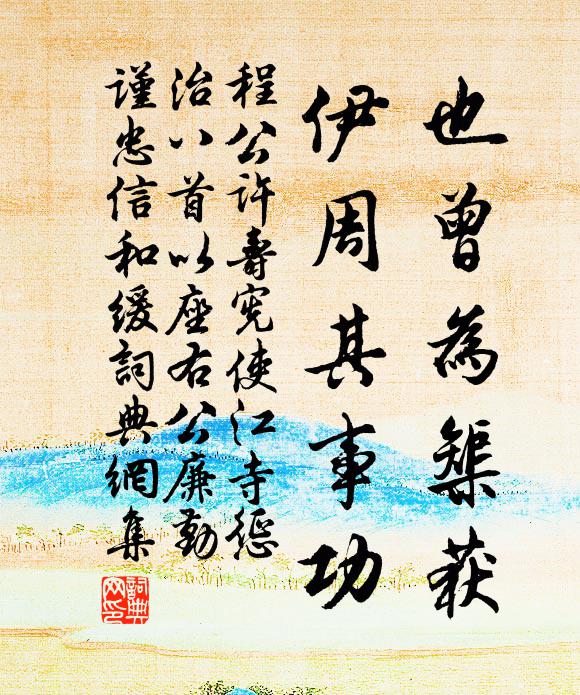 也曾為榘蒦
伊周其事功
程公許壽憲使江寺丞
治八首以座右公廉勤
謹忠信和緩詞典網集
詞典網印